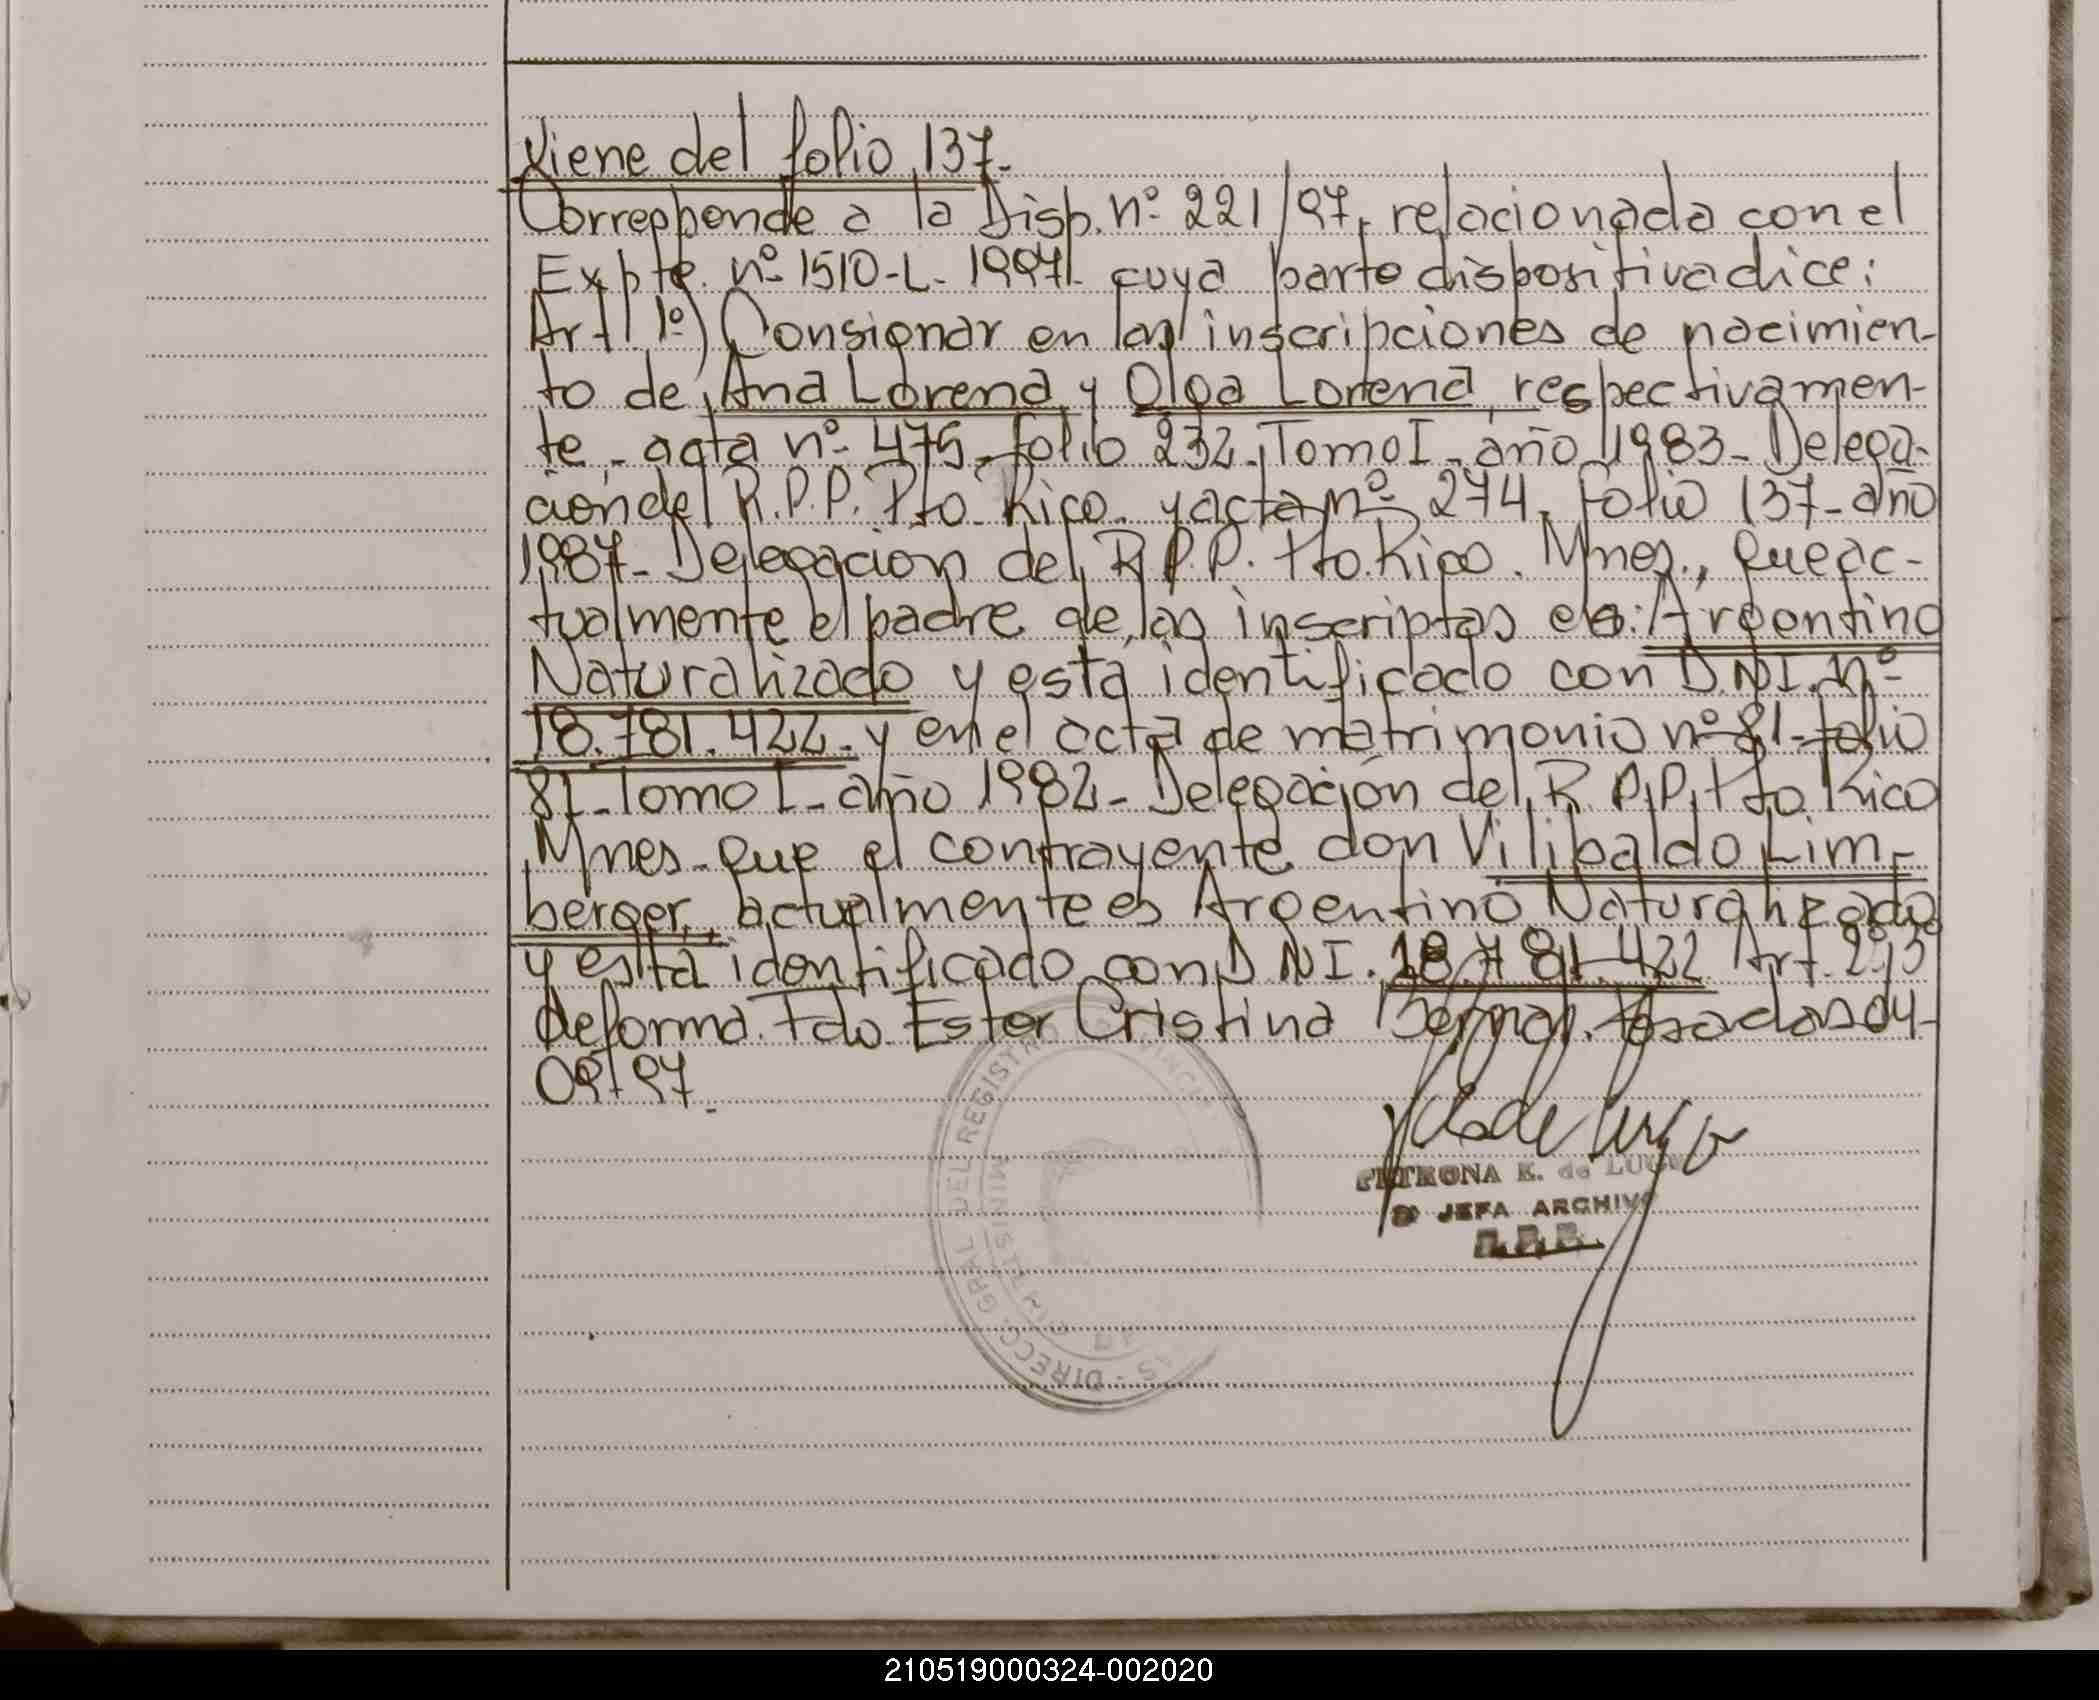 Viene del folio 137.
Corresponde a la Disp. nº 221/97. relacionada con el
Expte. nº 1510-L-1997. cuya parte dispositiva dice:
Art. 1º) Consignar en las inscripciones de nacimien-
to de Ana Lorena y Olga Lorena, respectivamen-
te - acta nº 475 - folio 232 - Tomo I - año 1983 - Delega-
cion del R.P.P. Pto. Rico. y acta nº 274 - folio 137 - año
1987 - Delegacion del R.P.P. Pto. Rico. Mnes., que ac-
tualmente el padre de las inscriptas es: Argentino
Naturalizado y está identificado con D.N.I. nº
18.781.422. y en el acta de matrimonio nº 81 - folio
81 - Tomo I - año 1982 - Delegación del R.P.P. Pto. Rico
Mnes - que el contrayente don Vilibaldo Lim-
berger, actualmente es Argentino Naturalizado
y está identificado con D.N.I. 18.781.422 Art. 2 y 3
de forma. Fdo. Ester Cristina Bernal. Posadas 04-
09-97.
PETRONA E. de LUGO
JEFA ARCHIVO
R.P.P.
DIRECC. GRAL. DEL REGISTRO PROVINCIAL
210519000324-002020